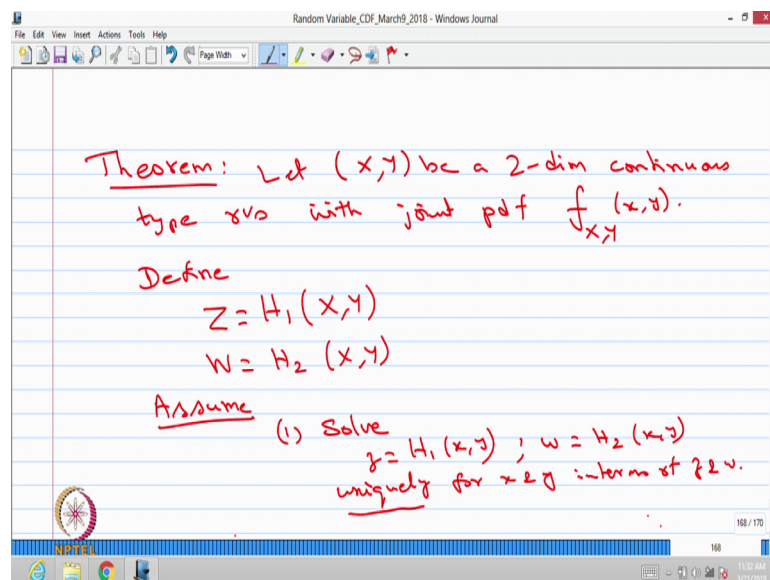 Random Variable_CDF_March9_2018 - Windows Journal
File Edit View Insert Actions Tools Help
Page Width
Theorem: Let (X,Y) be a 2-dim continuous
type rvs with joint pdf f_{X,Y}(x,y).
Define
Z = H₁(X,Y)
W = H₂(X,Y)
Assume
(1) Solve
z = H₁(x,y) ; w = H₂(x,y)
uniquely for x & y interms of z & w.
NPTEL
168 / 170
168
11:32 AM